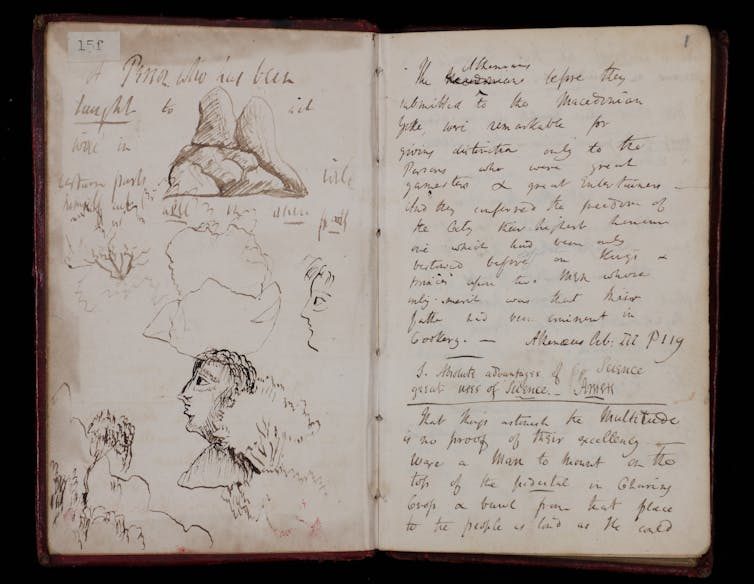 15f
A Person who has been
taught to act
wise in
certain parts will
himself well in open
1
Athenians
The before they
submitted to the Macedonian
Yoke, were remarkable for
giving distinction only to the
Persons who were great
gamesters & great Entertainers —
And they conferred the freedom of
the City their highest honour
one which had been only
bestowed before on Kings &
princes upon two Men whose
only merit was that their
father had been eminent in
Cookery. — Athenæus Lib. III P 119
1. Absolute advantages of Science
great uses of Science. – Amen
That things astonish the Multitude
is no proof of their excellency
Were a Man to mount on the
top of the pedestal in Charing
Cross & bawl from that place
to the people as loud as He could